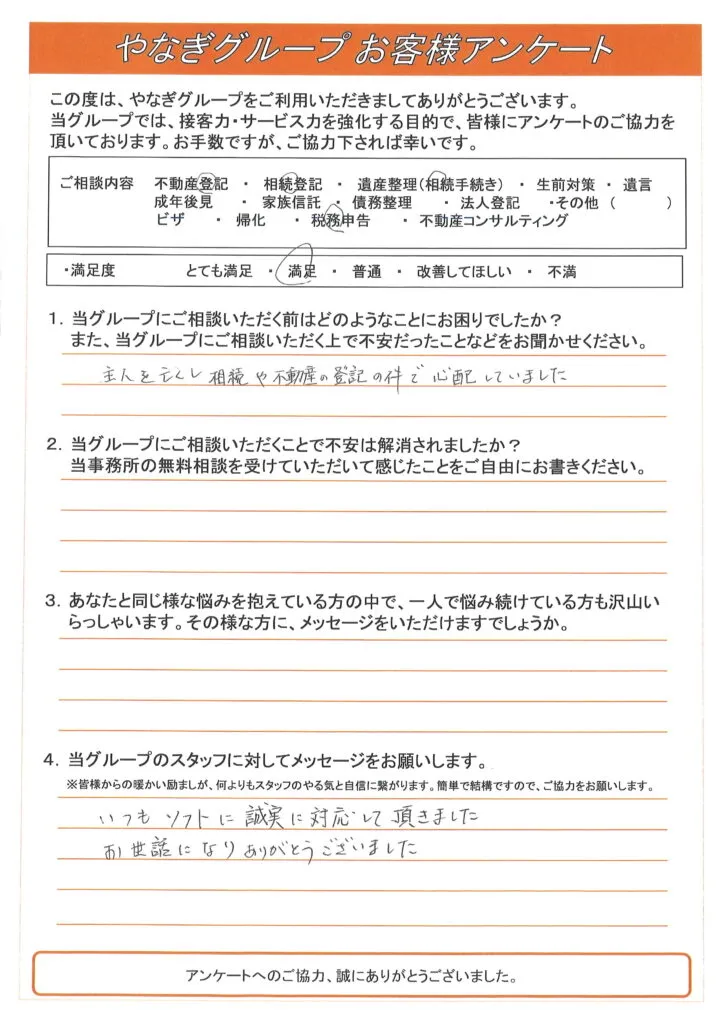 やなぎグループ お客様アンケート
この度は、やなぎグループをご利用いただきましてありがとうございます。
当グループでは、接客力・サービス力を強化する目的で、皆様にアンケートのご協力を
頂いております。お手数ですが、ご協力下されば幸いです。
ご相談内容 不動産登記 ・ 相続登記 ・ 遺産整理(相続手続き) ・ 生前対策 ・ 遺言
成年後見 ・ 家族信託 ・ 債務整理 ・ 法人登記 ・その他 ( )
ビザ ・ 帰化 ・ 税務申告 ・ 不動産コンサルティング
・満足度 とても満足 ・ 満足 ・ 普通 ・ 改善してほしい ・ 不満
1. 当グループにご相談いただく前はどのようなことにお困りでしたか?
また、当グループにご相談いただく上で不安だったことなどをお聞かせください。
主人を亡くし 相続や不動産の登記の件で心配していました
2. 当グループにご相談いただくことで不安は解消されましたか?
当事務所の無料相談を受けていただいて感じたことをご自由にお書きください。
3. あなたと同じ様な悩みを抱えている方の中で、一人で悩み続けている方も沢山い
らっしゃいます。その様な方に、メッセージをいただけますでしょうか。
4. 当グループのスタッフに対してメッセージをお願いします。
※皆様からの暖かい励ましが、何よりもスタッフのやる気と自信に繋がります。簡単で結構ですので、ご協力をお願いします。
いつも ソフトに 誠実に対応して頂きました
お世話になり ありがとうございました
アンケートへのご協力、誠にありがとうございました。